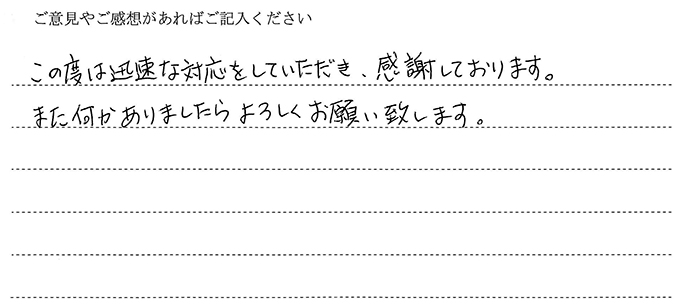 ご意見やご感想があればご記入ください
この度は迅速な対応をしていただき、感謝しております。
また何かありましたらよろしくお願い致します。